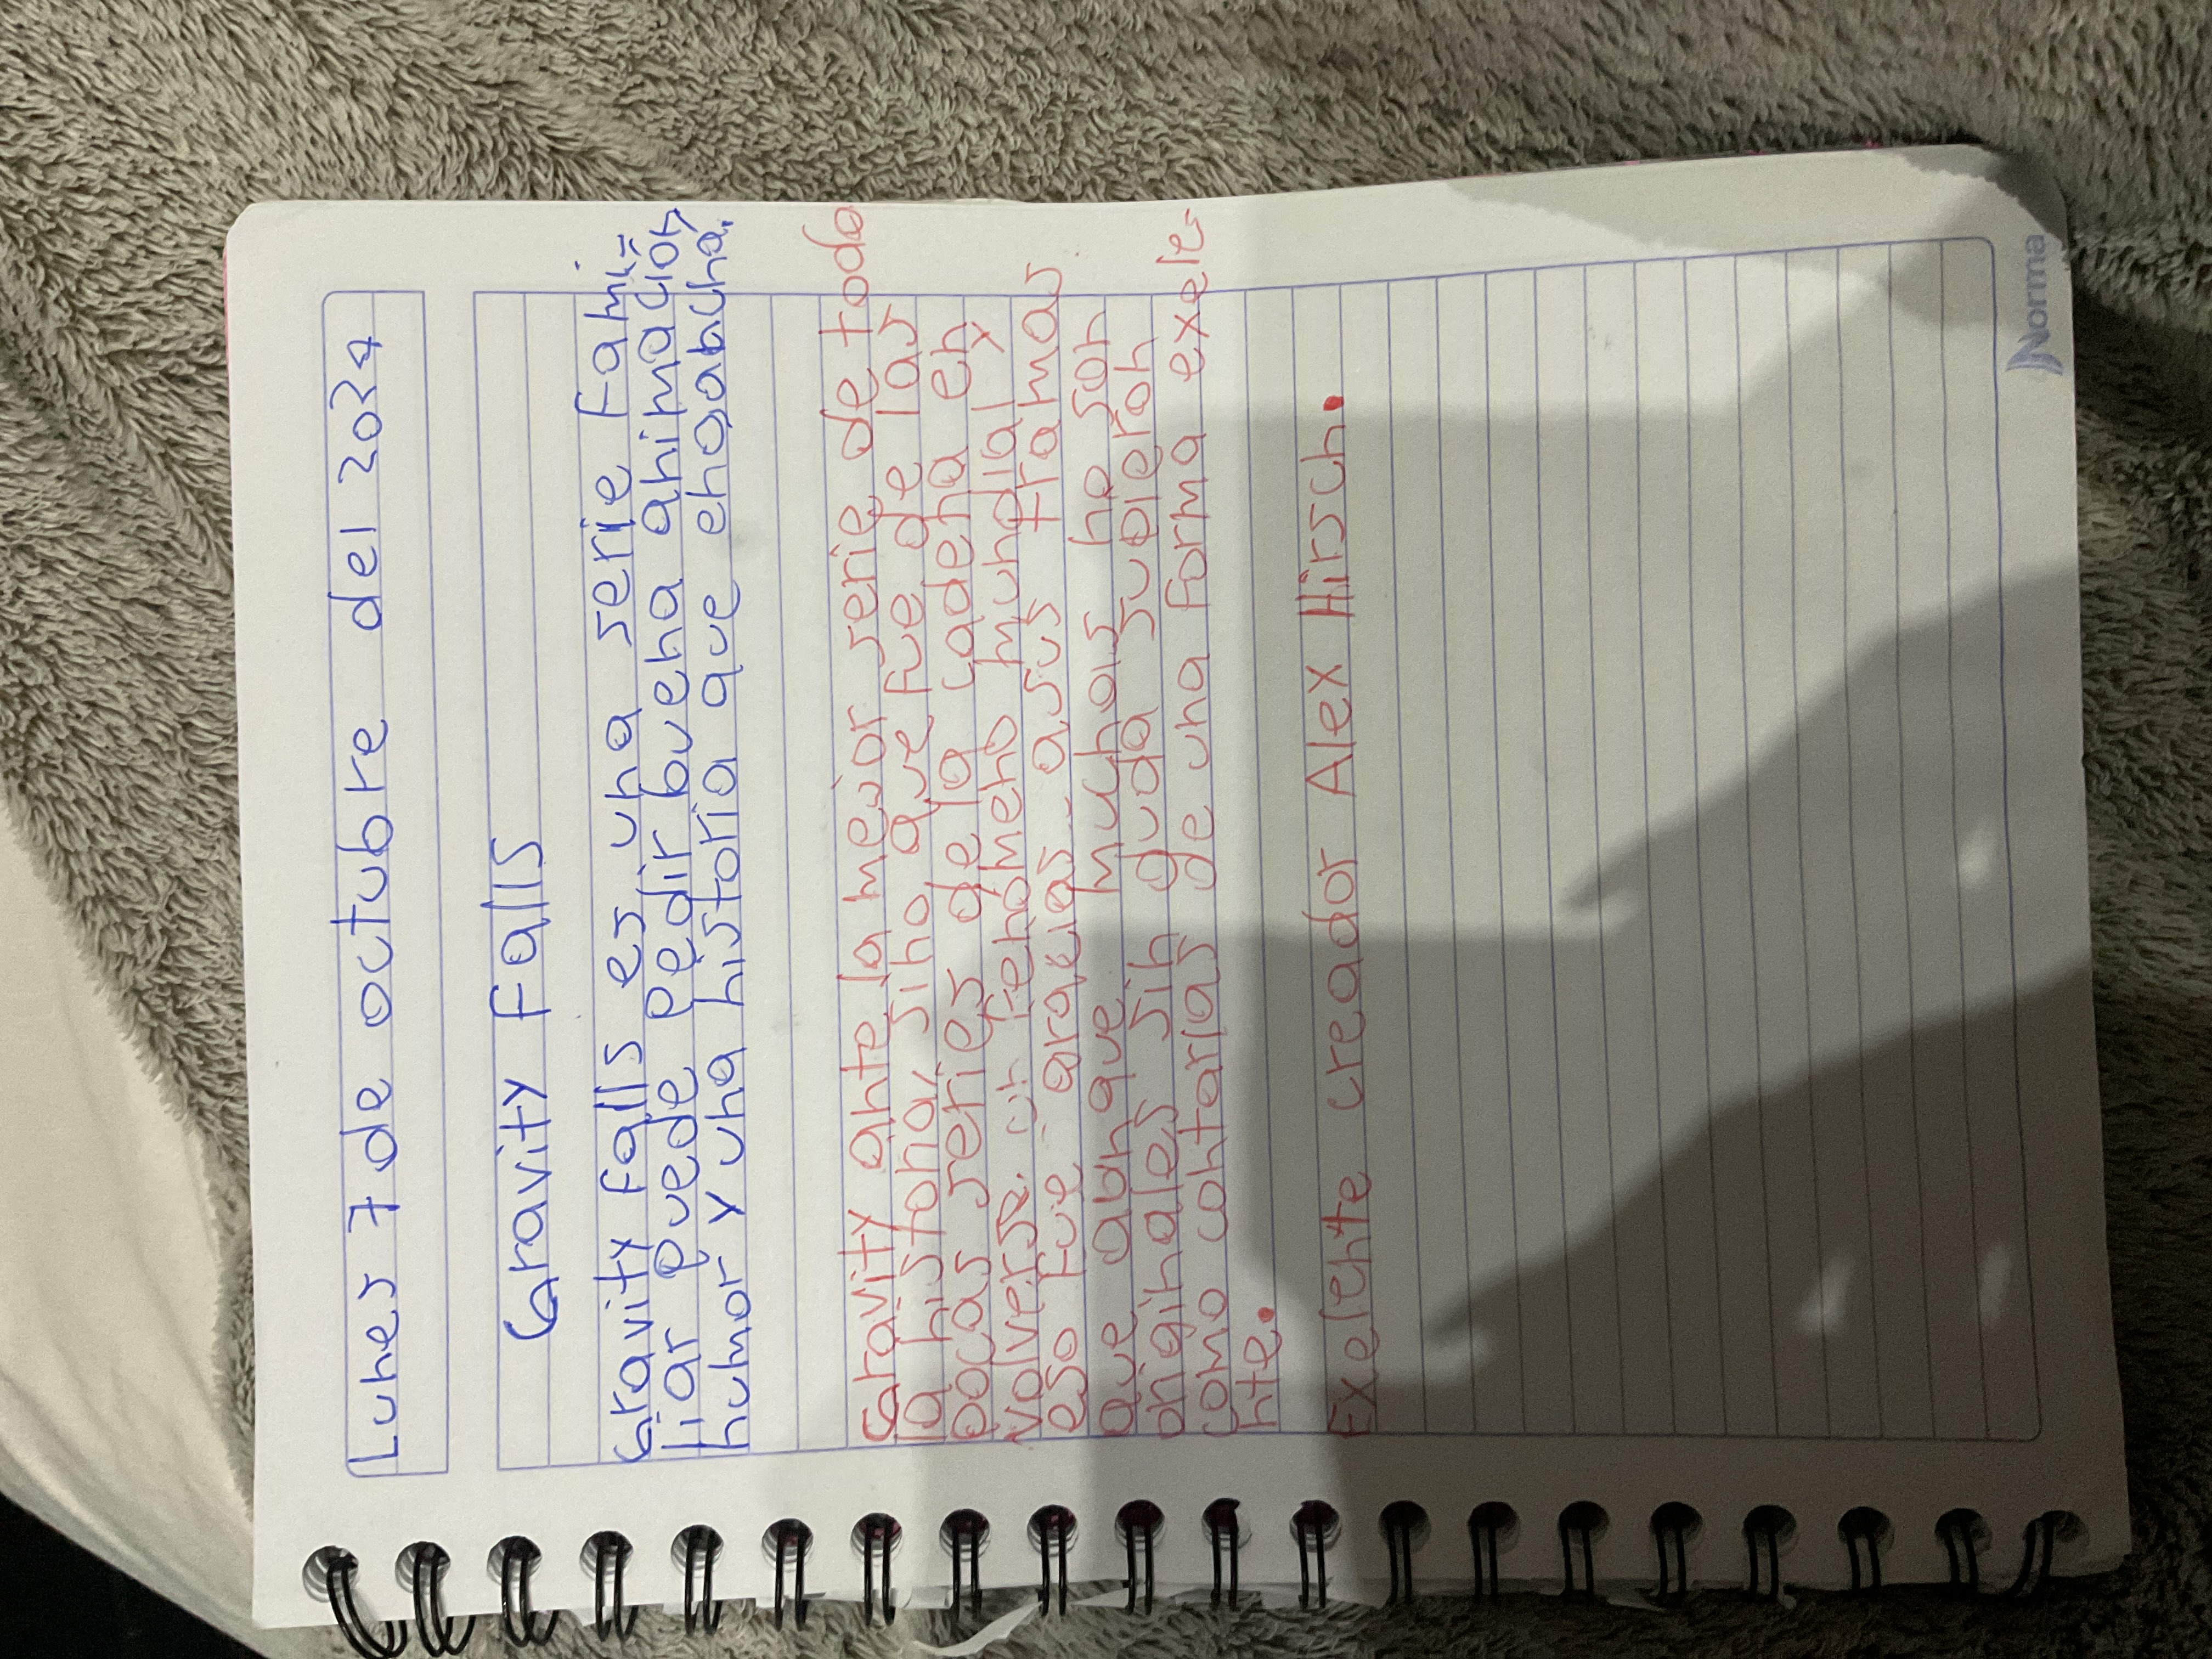 Lunes 7 de octubre del 2024
Gravity Falls
Gravity Falls es una serie Fami-
liar puede pedir buena animación,
humor y una historia que enogabacha.
Gravity ante la mejor serie de todo
la histona, sino que fue de las
pocas series de la cadena en
volverse un fenomeno mundial y
eso fue gracias asus tramas
que aunque muchas no son
originales sin duda suoieron
como contarlas de una forma exele-
nte.
Exelente creador Alex Hirsch.
Norma